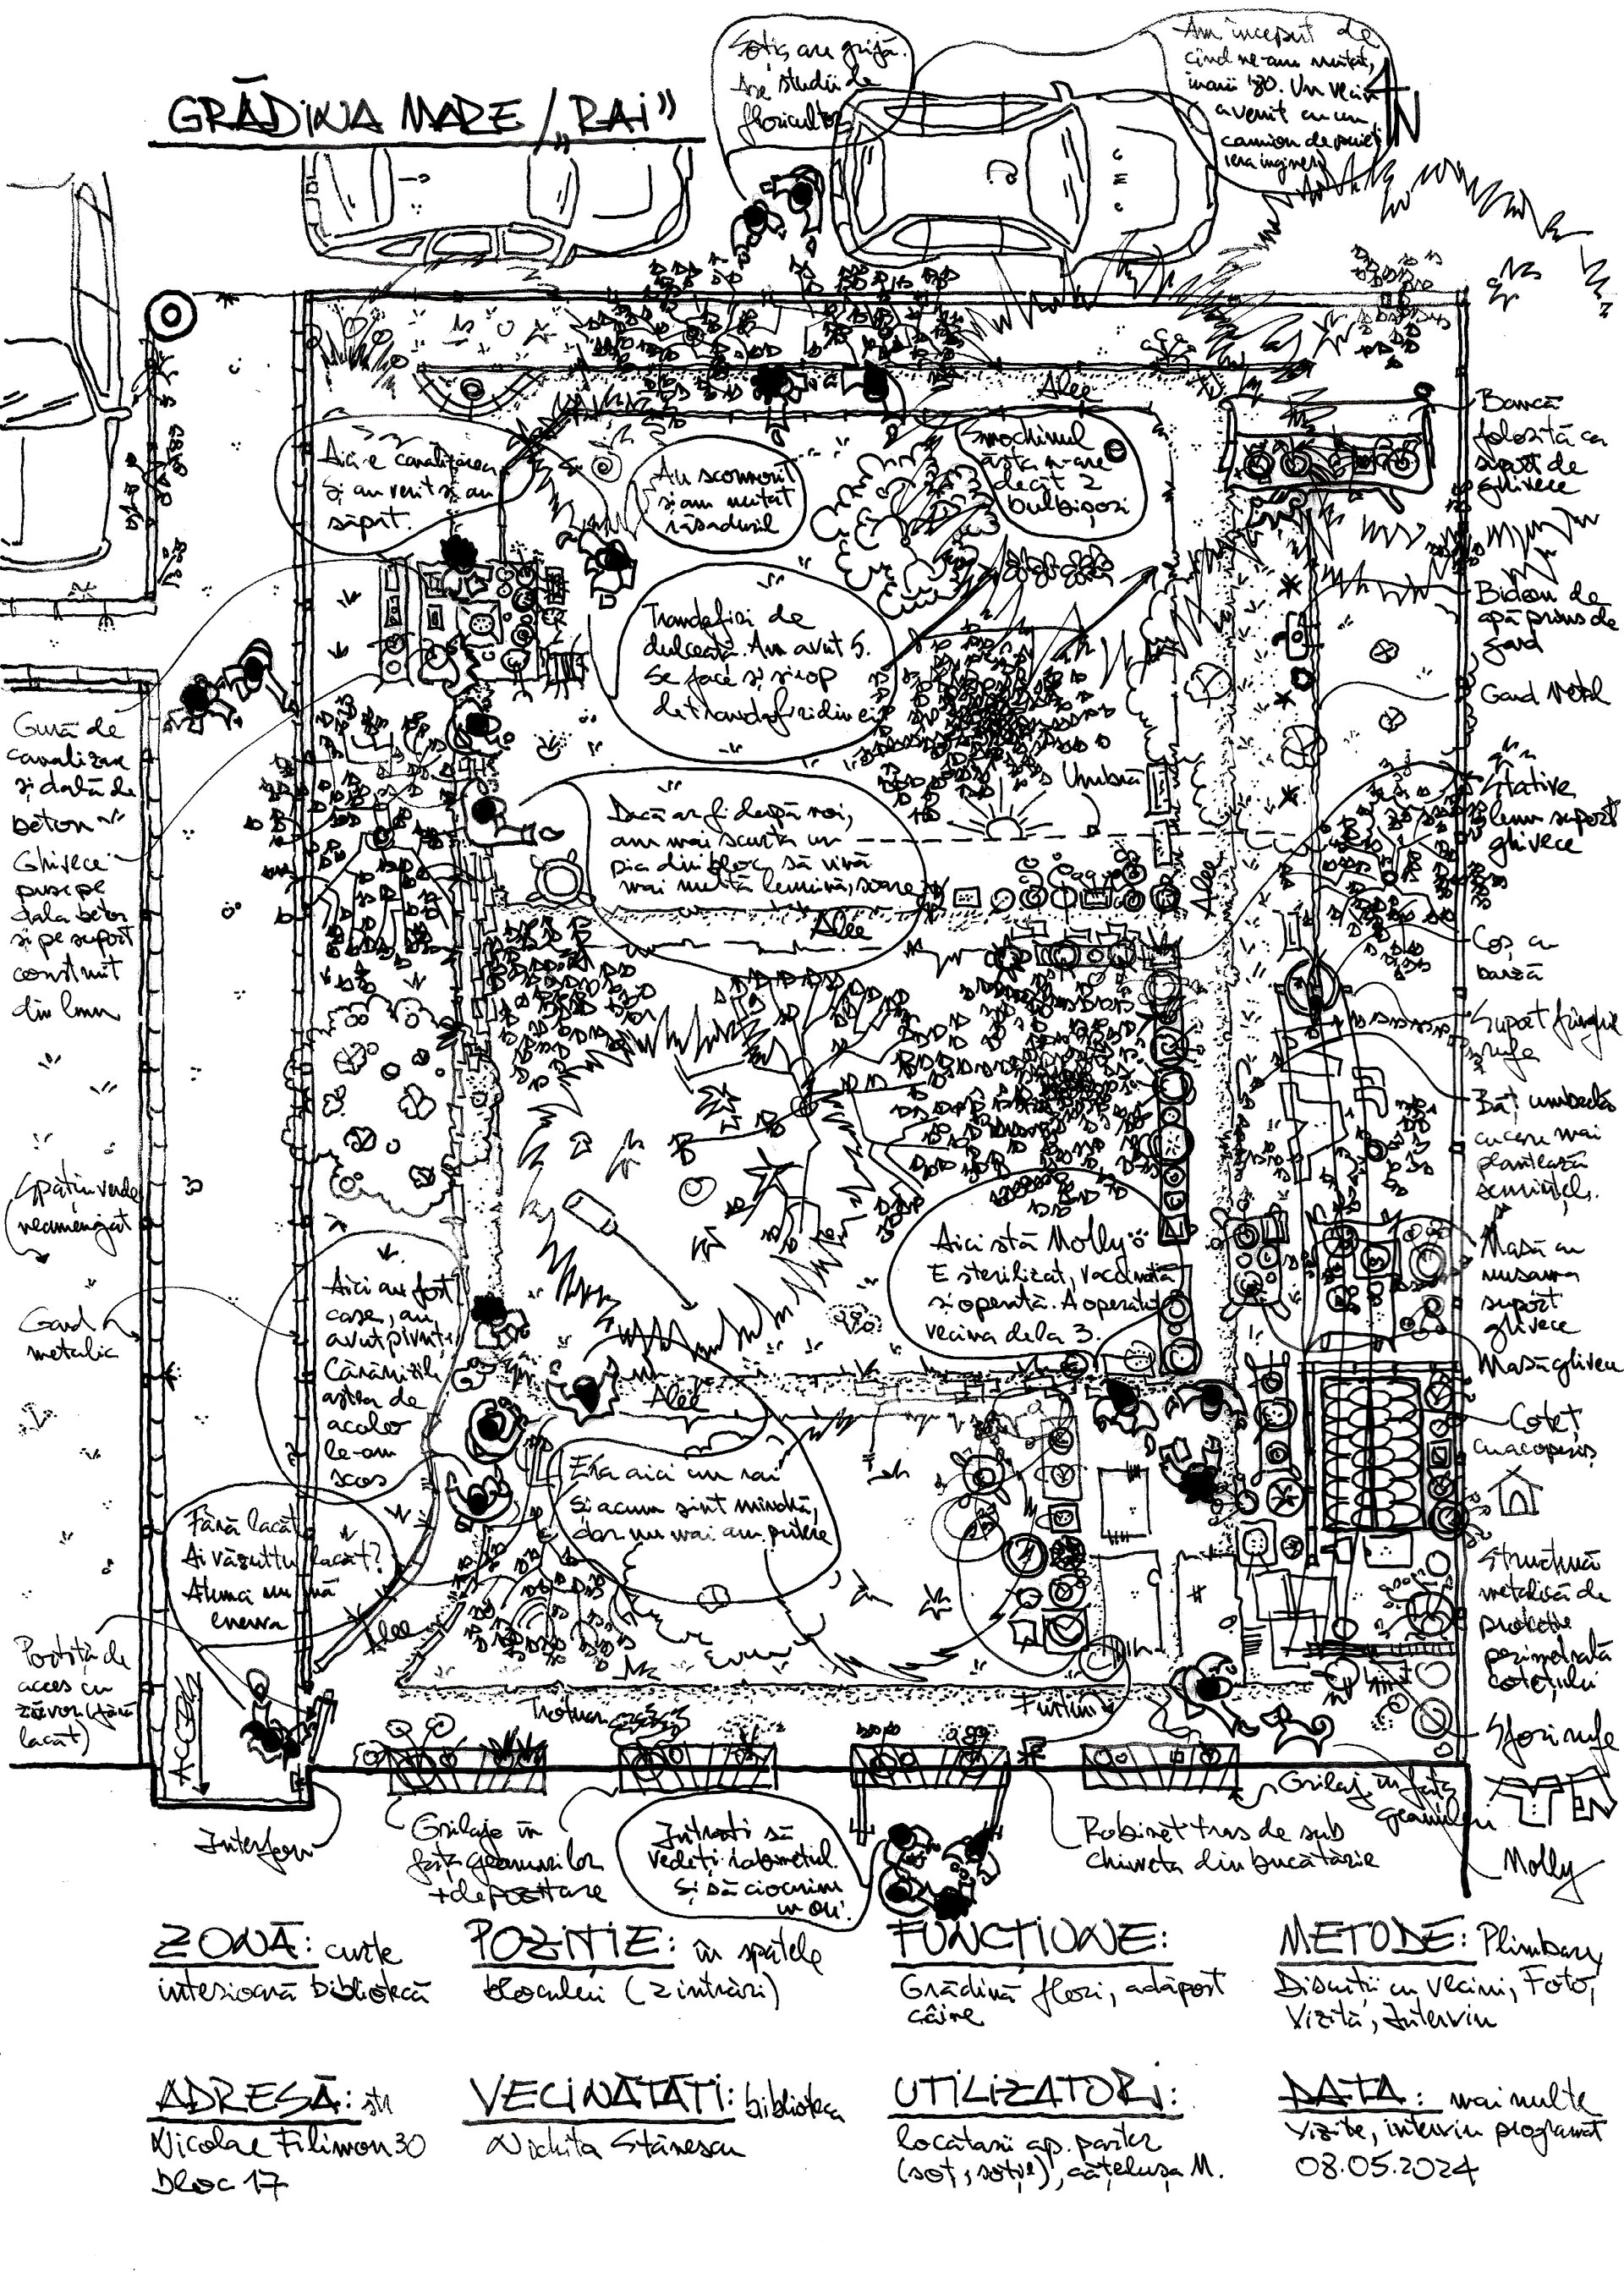 GRĂDINA MARE / „RAI”
Soția are grijă.
Are studii de
floricultor
Am început de
cînd ne-am mutat,
în anii '80. Un vecin
a venit cu un
camion de puieți
(era inginer)
N
Alee
Aici e canalizarea
și au venit și au
săpat.
Au scormonit
și am mutat
răsadurile
Smochinul
ăsta n-are
decât 2
bulbișori
Trandafiri de
dulceață. Am avut 5.
Se face și sirop
de trandafiri din ei
Dacă ar fi după noi,
am mai scurta un
pic din bloc, să vină
mai multă lumină, soare
Umbră
Alee
Alee
Aici stă Molly
E sterilizată, vaccinată
și operată. A operat-o
vecina de la 3.
Aici au fost
case, au
avut pivniți
Cărămizile
astea de
acolo
le-am
scos
Alee
Era aici un rai
Și acum sînt mîndră,
dar nu mai am putere
Fără lacăt
Ai văzut tu lacăt?
Atunci nu mă
enerva
Alee
ACCES
Trotuar
Furtun
Gură de
canalizare
și dală de
beton
Ghivece
puse pe
dala beton
și pe suport
construit
din lemn
Spațiu verde
neamenajat
Gard
metalic
Portiță de
acces cu
zăvor (fără
lacăt)
Bancă
folosită ca
suport de
ghivece
Bidon de
apă prins de
gard
Gard Metal
Stative
lemn suport
ghivece
Coș cu
barză
Suport frînghie
rufe
Băț umbrelă
cu care mai
plantează
semințe.
Masă cu
mușama
suport
ghivece
Masă ghivece
Coteț
cu acoperiș
Structură
metalică de
protecție
perimetrală
cotețului
Sfori rufe
Grilaj în fața
geamului
Molly
Interfon
Grilaje în
fața geamurilor
+ depozitare
Intrați să
vedeți robinetul.
Și să ciocnim
un ou.
Robinet tras de sub
chiuveta din bucătărie
ZONĂ: curte
interioară bibliotecă
POZIȚIE: în spatele
blocului (2 intrări)
FUNCȚIUNE:
Grădină flori, adăpost
câine
METODE: Plimbare,
Discuții cu vecini, Foto,
Vizită, Interviu
ADRESĂ: str
Nicolae Filimon 30
bloc 17
VECINĂTĂȚI: biblioteca
Nichita Stănescu
UTILIZATORI:
locatarii ap. parter
(soț, soție), cățelușa M.
DATA: mai multe
vizite, interviu programat
08.05.2024